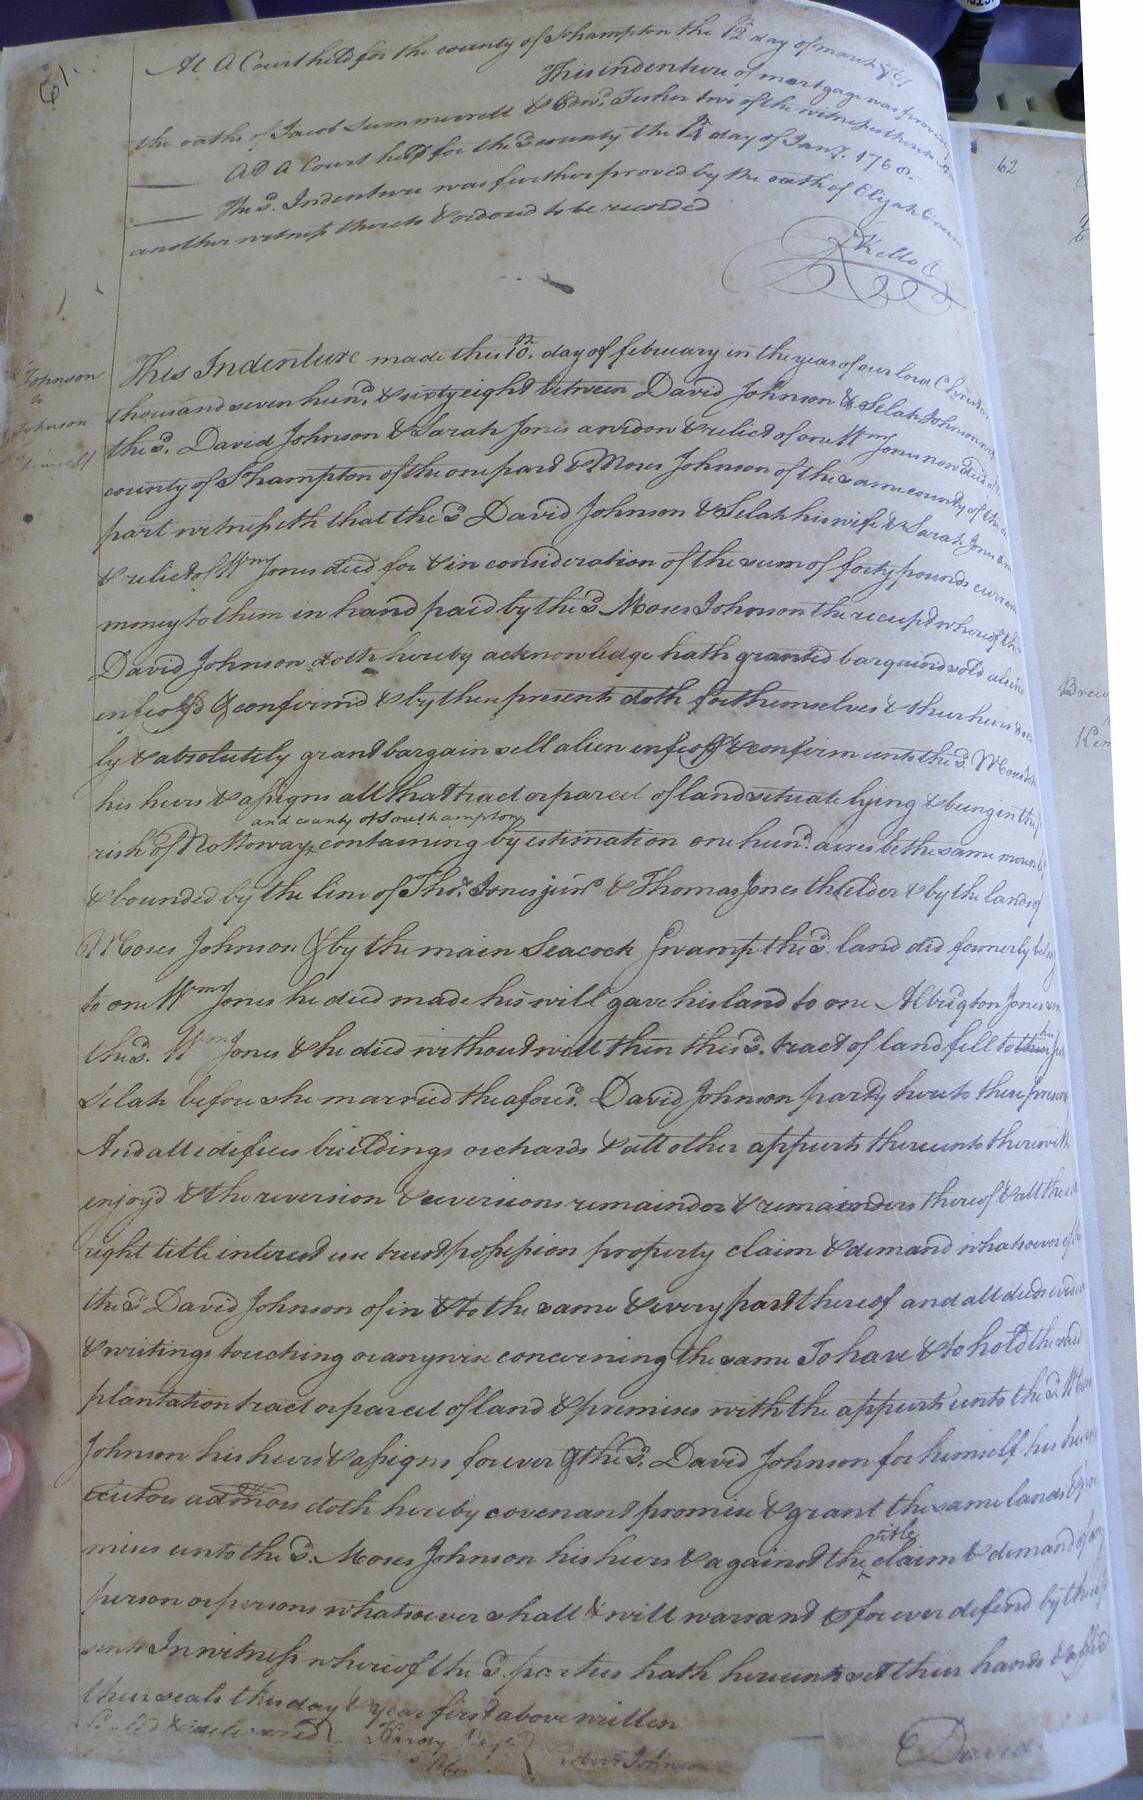 61.
At A Court held for the county of Sohampton the 12 day of march
This indenture of mortgage was
the oaths of Jacob Summerrell & Edwd. Fisher two of the witnesses
Ad A Court held for the sd county the 14 day of Jany. 1768.
The sd. Indenture was further proved by the oath of Elijah
another witness thereto & ordered to be recorded
Kello
62
Johnson
to
Johnson
This Indenture made this 10th. day of february in the year of our lord Christ
thousand seven hund. & sixty eight between David Johnson & Selah Johnson
the sd. David Johnson & Sarah Jones widow & relict of one Wm Jones now decd
county of Sohampton of the one part & Moses Johnson of the same county of the
part witnesseth that the sd David Johnson & Selah his wife & Sarah Jones
& relict of Wm Jones died for & in consideration of the sum of forty pounds
money to them in hand paid by the sd Moses Johnson the receipt whereof
David Johnson doth hereby acknowledge hath granted bargaind sold
infeoff'd & confirmd & by these presents doth for themselves & their heirs
ly & absolutely grant bargain sell alien infeoff & confirm unto the sd. Moses
his heirs & assigns all that tract or parcel of land situate lying & being in the
and county of Southampton
rish of Nottoway containing by estimation one hund. acres be the same more
& bounded by the line of Tho. Jones junr & Thomas Jones the elder & by the lands of
Moses Johnson & by the main Seacock Swamp the sd. land did formerly
to one Wm Jones he died made his will gave his land to one Albrigton Jones
the sd. Wm Jones & he died without will then this sd. tract of land fell to
Selah before she married the afores. David Johnson party hereto these
And all edifices buildings orchards & all other appurts thereunto
enjoyd & the reversion & reversions remainder & remainders thereof & all the
right title interest use trust possession property claim & demand whatsoever
the sd David Johnson of in & to the same & every part thereof and all deeds
& writings touching or anywise concerning the same To have & to hold the said
plantation tract or parcel of land & premises with the appurts unto the sd.
Johnson his heirs & assigns forever & the sd. David Johnson for himself his heirs
doth hereby covenant promise & grant the same lands
title
mises unto the sd. Moses Johnson his heirs & against the claim & demand of
person or persons whatsoever shall & will warrant & forever defend by these
sents In witness whereof the sd. parties hath hereunto set their hands &
their seals this day & year first above written
Hardy
Johnson
David